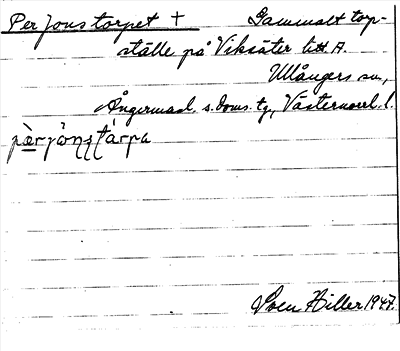 Per Jonstorpet † Gammalt torp-
ställe på Viksäter litt. A.
Ullångers sn,
Ångermanl. s. doms. tg, Västernorrl. l.
Sven Hiller 1947.